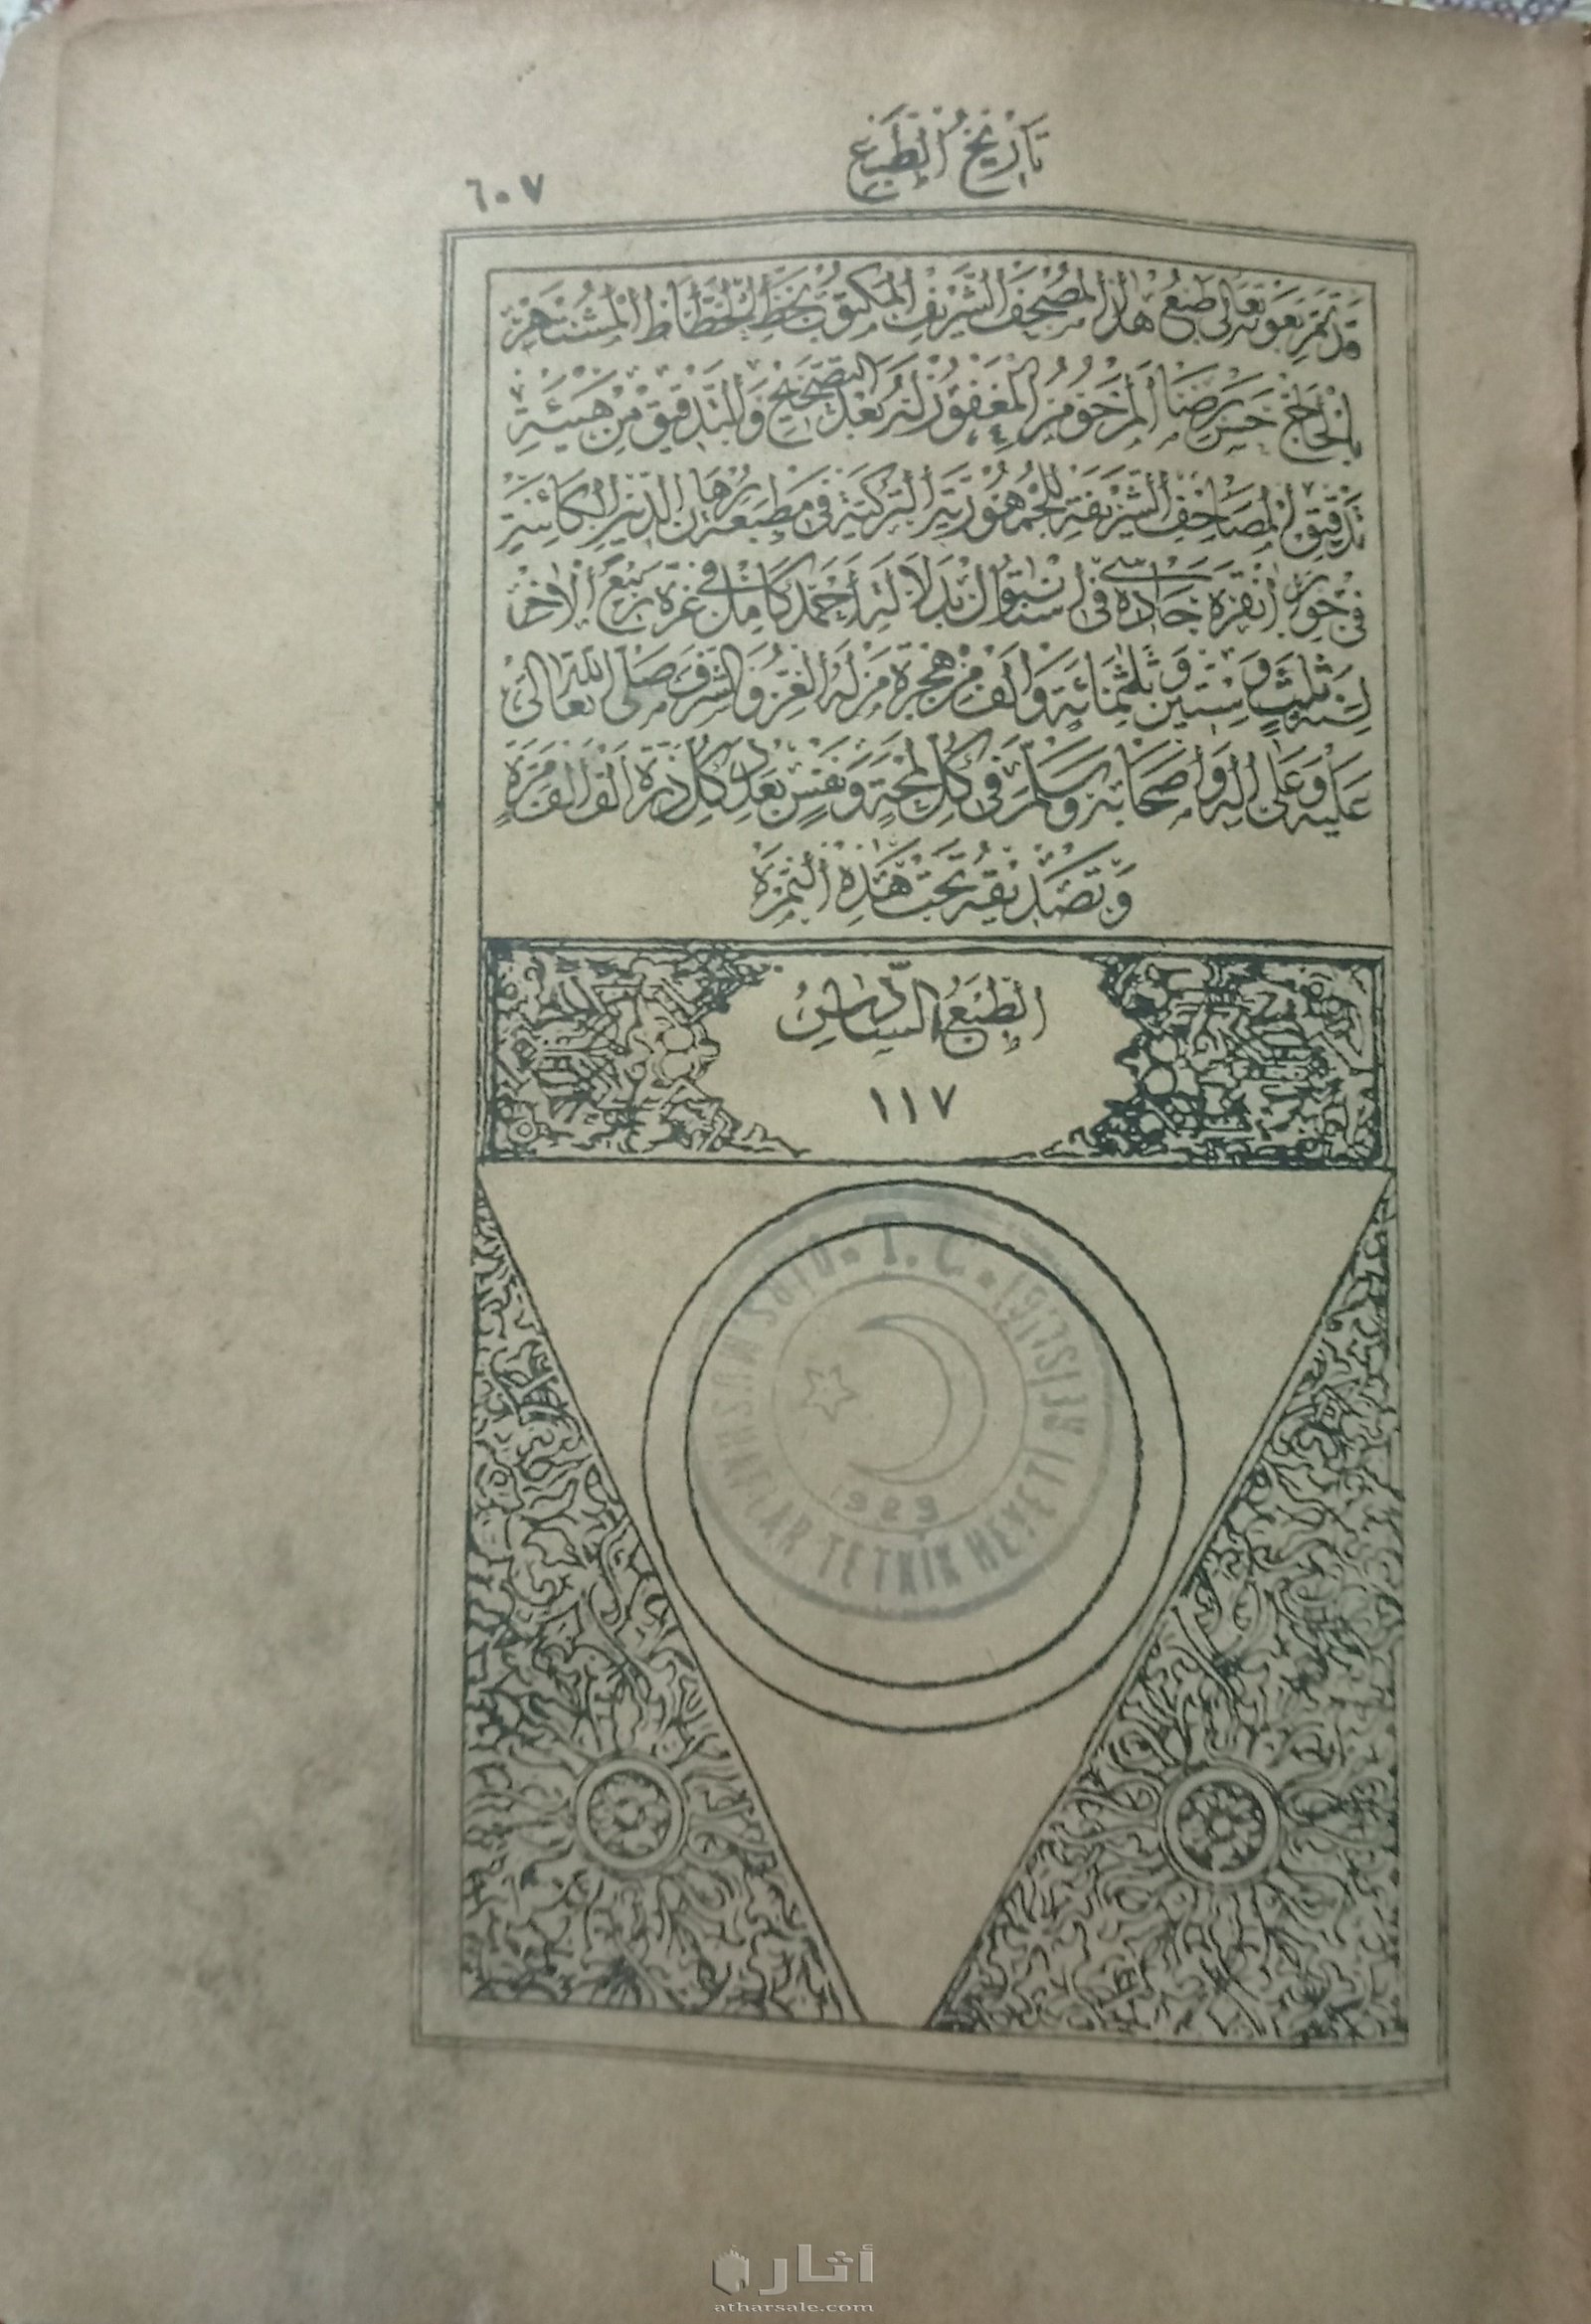 تاريخ الطبع
٦٠٧
قد تم بعونه تعالى طبع هذا المصحف الشريف المكتوب بخط الخطاط المشتهر
بالحاج حسن رضا المرحوم المغفور له بعد التصحيح والتدقيق من هيئة
تدقيق المصاحف الشريفة للجمهورية التركية في مطبعة برهان الدين الكائنة
في جوار أنقره جاده سي في استانبول بدلالة أحمد كامل في غرة ربيع الآخر
لسنة ثلث وستين وثلثمائة وألف من هجرة من له العز والشرف صلى الله تعالى
عليه وعلى اله وأصحابه وسلم في كل لمحة ونفس بعدد كل ذرة ألف ألف مرة
وتصديقه تحت هذه النمرة
الطبع السادس
١١٧
T. C.
MUSHAFLAR TETKİK HEYETİ REİSLİĞİ
1923
أثار
atharsale.com